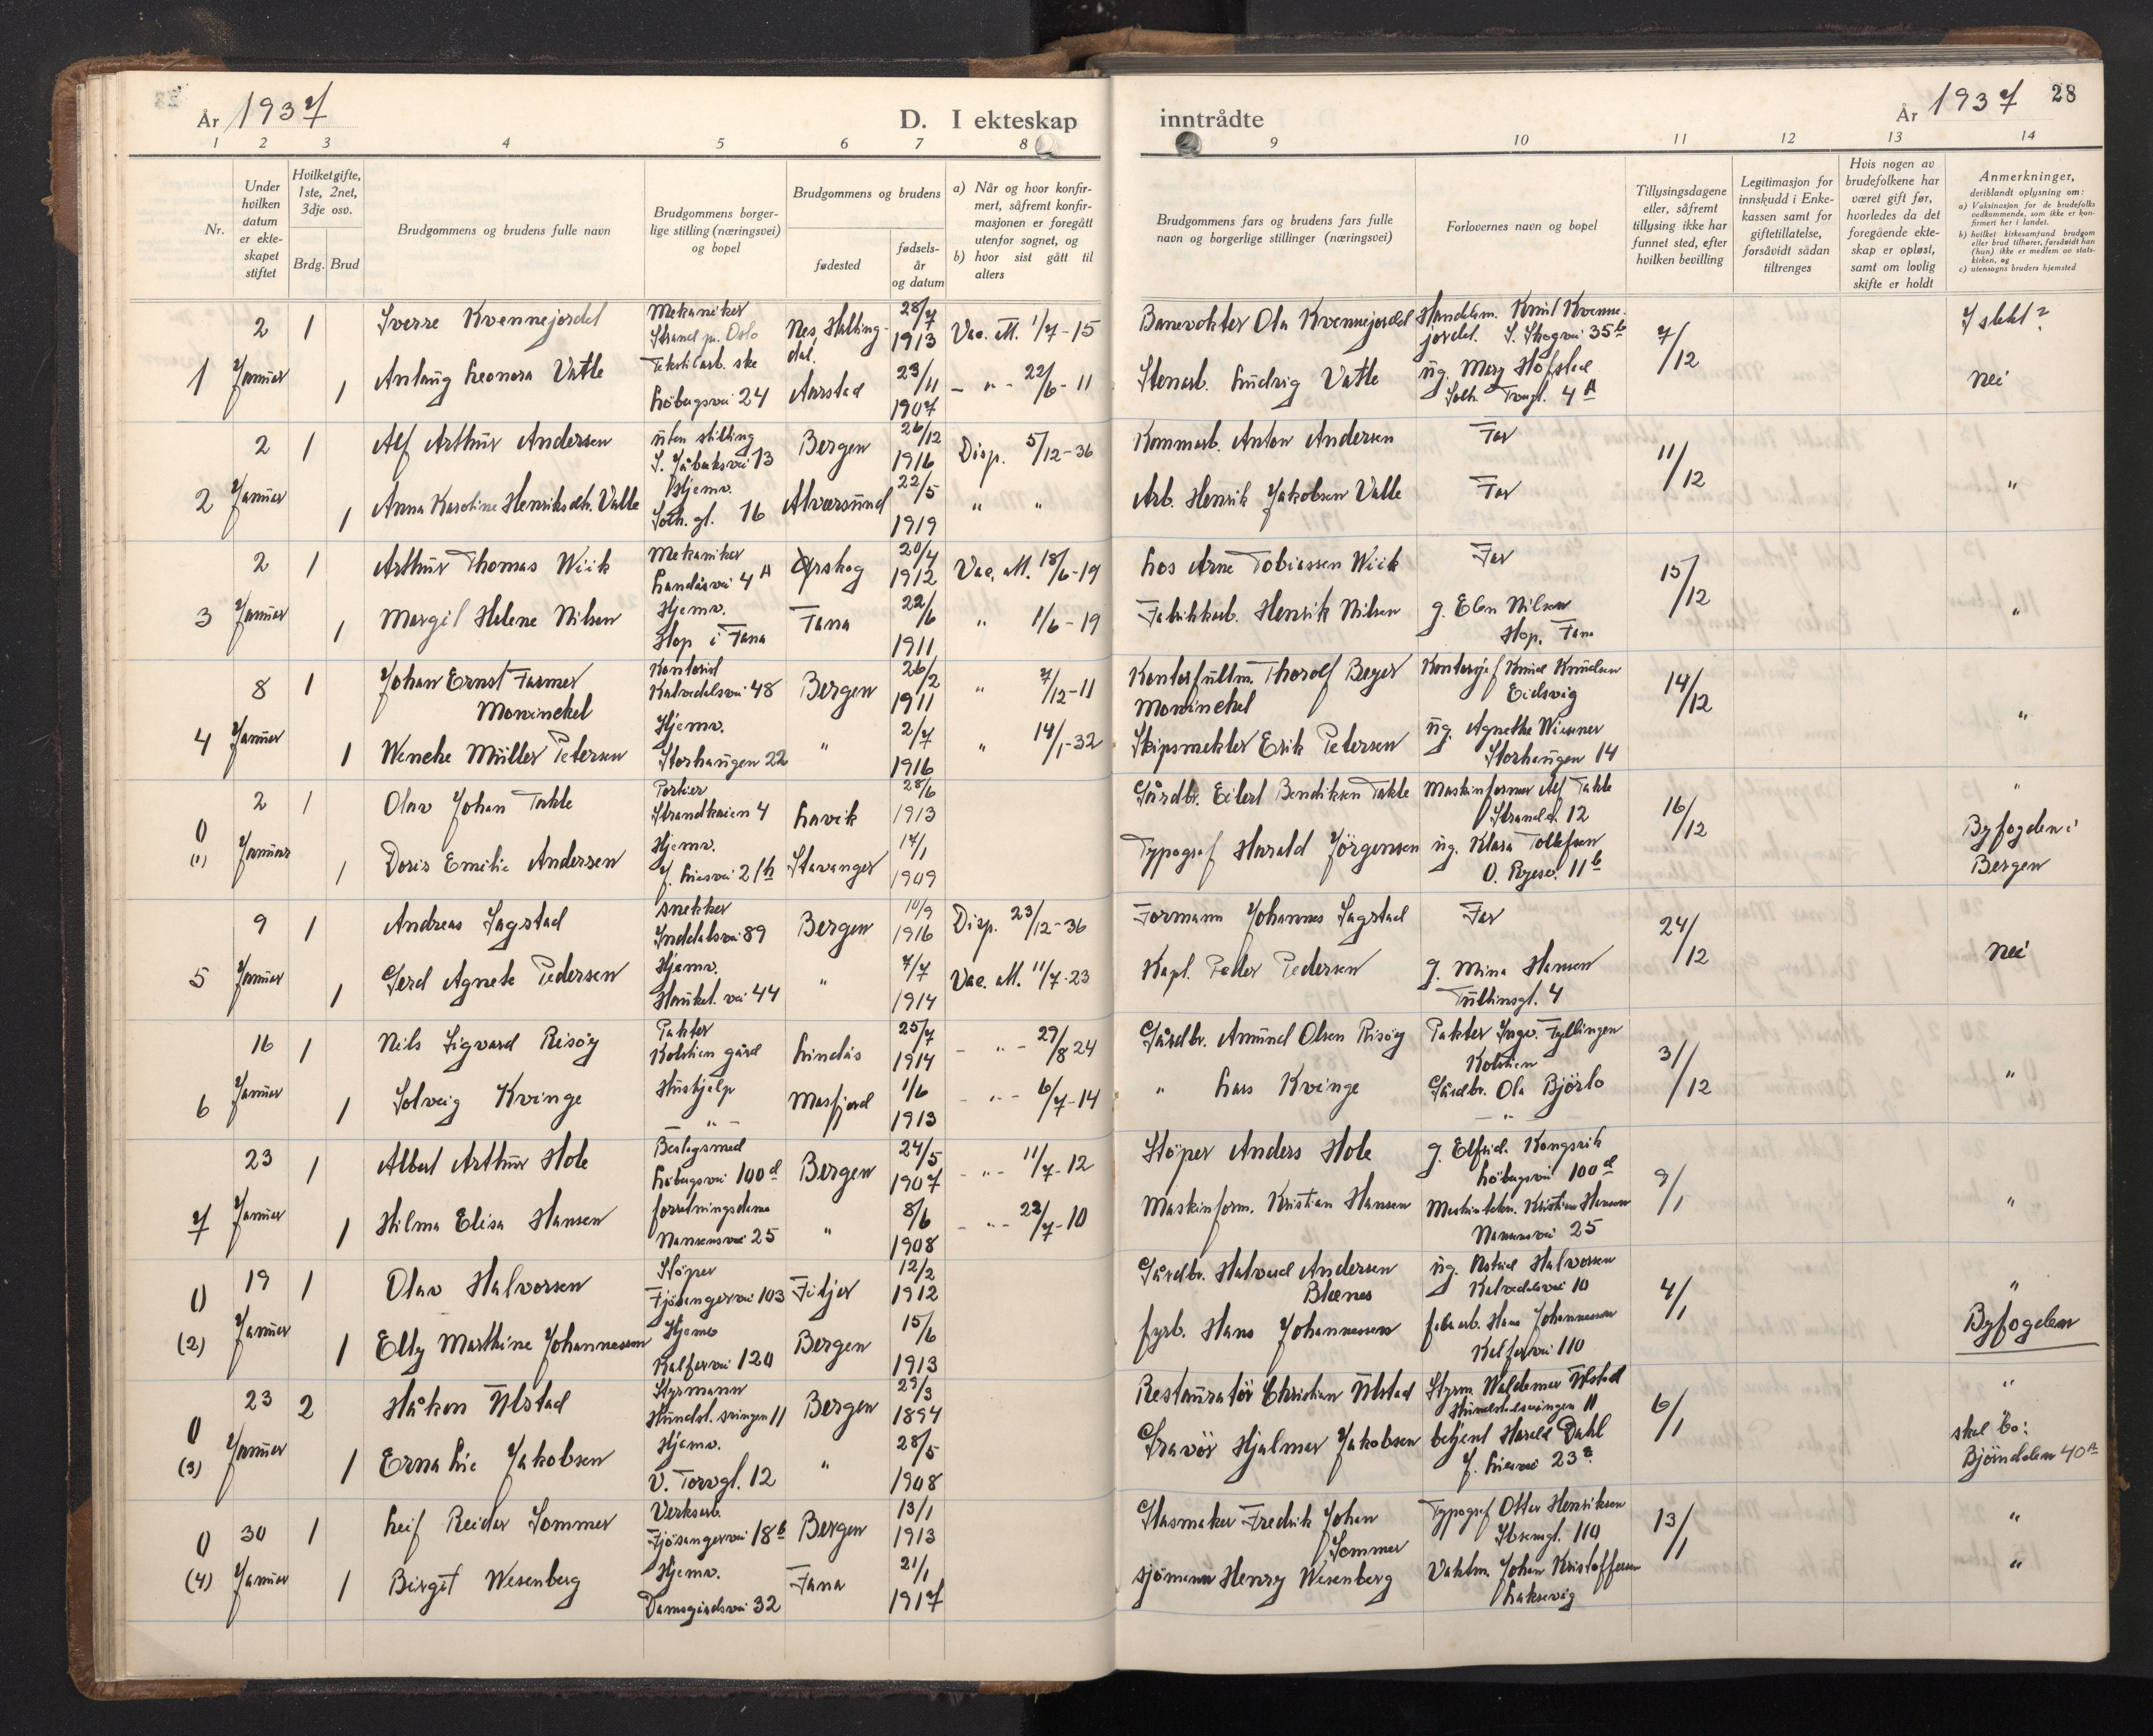 År 1937
D. I ekteskap
1 2 3 4 5 6 7 8
Nr.
Under hvilken datum er ekte-skapet stiftet
Hvilket gifte, 1ste, 2net, 3dje osv.
Brdg. Brud
Brudgommens og brudens fulle navn
Brudgommens borger-lige stilling (næringsvei) og bopel
Brudgommens og brudens
fødested
fødsels-år og datum
a) Når og hvor konfir-mert, såfremt konfir-masjonen er foregått utenfor sognet, og
b) hvor sist gått til alters
inntrådte
År 1937 28
9 10 11 12 13 14
Brudgommens fars og brudens fars fulle navn og borgerlige stillinger (næringsvei)
Forlovernes navn og bopel
Tillysingsdagene eller, såfremt tillysing ikke har funnet sted, efter hvilken bevilling
Legitimasjon for innskudd i Enke-kassen samt for giftetillatelse, forsåvidt sådan tiltrenges
Hvis nogen av brudefolkene har været gift før, hvorledes da det foregående ekte-skap er opløst, samt om lovlig skifte er holdt
Anmerkninger,
deriblandt oplysning om:
a) Vaksinasjon for de brudefolks vedkommende, som ikke er kon-firmert her i landet.
b) hvilket kirkesamfund brudgom eller brud tilhører, forsåvidt han (hun) ikke er medlem av stats-kirken, og
c) utensogns bruders hjemsted
2 1 Sverre Kvennejordel Mekaniker Strand pr. Oslo Nes, Halling-dal. 28/7 1913 Vac. att. 1/7-15 Banevokter Ola Kvennejordel Handelsm. Knut Kvenne-jordel. S. Skogvei 35b 7/12 I slekt?
1 Januar 1 Antaug Leonora Vatle Tekstilarb.ske Löbergsvei 24 Aarstad 23/11 1907 - " - 22/6-11 Stenarb. Ludvig Vatle ug. Mary Hofstad Solh. Tvergl. 4A nei
2 1 Alf Arthur Andersen uten stilling 13 Bergen 26/12 1916 Disp. 5/12-36 Kommarb. Anton Andersen Far 11/12
2 Januar 1 Anna Karoline Henriksdtr. Valle Hjemv. Solh. gl. 16 Alversund 22/5 1919 " " Arb. Henrik Jakobsen Valle Far "
2 1 Arthur Thomas Wiik Mekaniker Landåsvei 4A Ørskog 20/4 1912 Vac. att. 18/6-19 Los Arne Tobiassen Wiik Far 15/12
3 Januar 1 Margit Helene Nilsen Hjemv. Hop i Fana Fana 22/6 1911 " 1/6-19 Fabrikkarb. Henrik Nilsen g. Elen Nilsen Hop, Fana "
8 1 Johan Ernst Fasmer Mowinckel Kontorist Kalvedalsvei 48 Bergen 26/2 1911 " 7/12-11 Kontorfullm. Thorolf Beyer Mowinckel Kontorsjef Knud Knudsen Eidsvåg 14/12
4 Januar 1 Wenche Müller Petersen Hjemv. Storhaugen 22 " 2/7 1916 " 14/1-32 Skipsmekler Erik Petersen ug. Agnethe Wiesener Storhaugen 14 "
0 2 1 Olav Johan Takle Portier Strandkaien 4 Lavik 28/6 1913 Gårdbr. Eilert Bendiksen Takle Maskinformer Alf Takle Strandgt. 12 16/12 "
(1) Januar 1 Doris Emilie Andersen J. Liesvei 21h Hjemv. Stavanger 17/1 1909 Typograf Harald Jörgensen ug. Klara Tollefsen O. Ryesv. 11b Byfogden i Bergen
9 1 Andreas Sagstad snekker Inndalsvei 89 Bergen 10/9 1916 Disp. 23/12-36 Formann Johannes Sagstad Far 24/12
5 Januar 1 Gerd Agnete Pedersen Hjemv. Haukel. vei 44 " 7/7 1914 Vac. att. 11/7-23 Kapt. Peder Pedersen g. Mina Hansen Tullinsgt. 4 nei
16 1 Nils Sigvard Risöy Pakter Kolstien gård Lindås 25/7 1914 - " - 29/8 24 Gårdbr. Amund Olsen Risöy Pakter Ingv. Fyllingen Kolstien 31/12
6 Januar 1 Solveig Kvinge Hushjelp - " - Masfjord 1/6 1913 - " - 6/7-14 " Lars Kvinge Gårdbr. Ola Bjørlo - " - "
23 1 Albert Arthur Hole Beslagsmed Löbergsvei 100d Bergen 24/5 1907 - " - 11/7-12 Stöper Anders Hole g. Elfrid. Kongsvik Löbergsvei 100d 9/1
7 Januar 1 Hilma Elisa Hansen forretningsdame Nansensvei 25 " 8/6 1908 - " - 22/7-10 Maskinform. Kristian Hansen Kristian Hansen Nansensvei 25 "
0 19 1 Olav Halvorsen Stöper Fjösangervei 103 Fitjar 12/2 1912 Gårdbr. Halvard Andersen Blænes ug. Astrid Halvorsen Kalvedalsvei 10 4/1 "
(2) Januar 1 Elly Marthine Johannessen Hjemv Kalfarvei 120 Bergen 15/6 1913 fyrb. Hans Johannessen fabr.arb. Hans Johannessen Kalfarvei 110 Byfogden
0 23 2 Håkon Ulstad Styrmann Haukel. svingen 11 Bergen 29/3 1894 Restauratör Christian Ulstad Styrm. Waldemar Ulstad 11 6/1 "
(3) Januar 1 Erna Lie Jakobsen Hjemv. V. Torvgt. 12 " 28/5 1908 Gravör Hjalmar Jakobsen betjent Harald Dahl J. Liesvei 23a skal bo: Bjørndalen 40A
0 30 1 Leif Reidar Sommer Verksarb. Fjösangervei 18b Bergen 13/1 1913 Glasmaker Fredrik Johan Sommer Typograf Otter Henriksen Ibsensgt. 110 13/1 "
(4) Januar 1 Birgit Wesenberg Hjemv. Damsgårdsvei 32 Fana 21/1 1917 sjömann Henry Wesenberg Vaktm. Johan Kristoffersen Laksevåg "